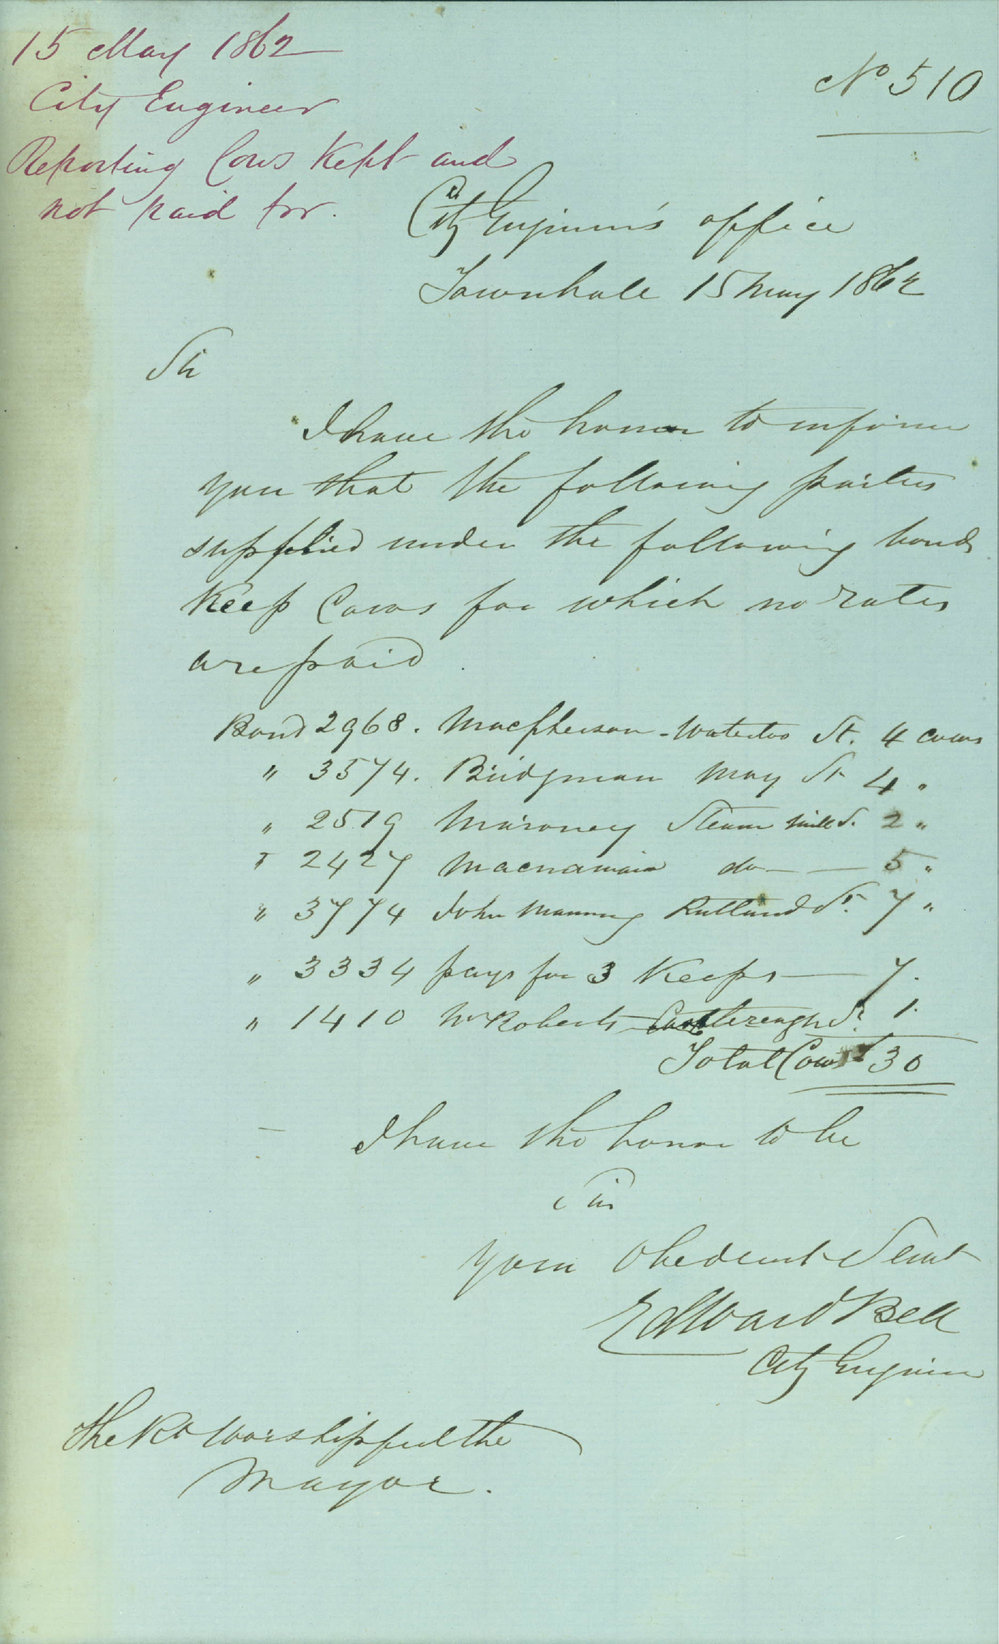 15 May 1862
City Engineer
Reporting Cows Kept and
not paid for.
No 510
City Engineer's office
Townhall 15 May 1862
Sir
I have the honor to inform
you that the following parties
supplied under the following bonds
Keep Cows for which no rates
are paid.
Bond 2968. Macpherson - Waterloo St. 4 cows
" 3574. Bridgman May St 4 "
" 2519 Maroney Steam Mill St. 2 "
" 2427 Macnamara do — — 5 "
" 3774 John Manning Rutland St. 7 "
" 3334 pays for 3 Keeps — 7.
" 1410 McRoberts Castlereagh St. 1.
Total Cows 30
I have the honor to be
Sir
Your Obedient Servt
Edward Bell
City Engineer
The Rt Worshipful the
Mayor.